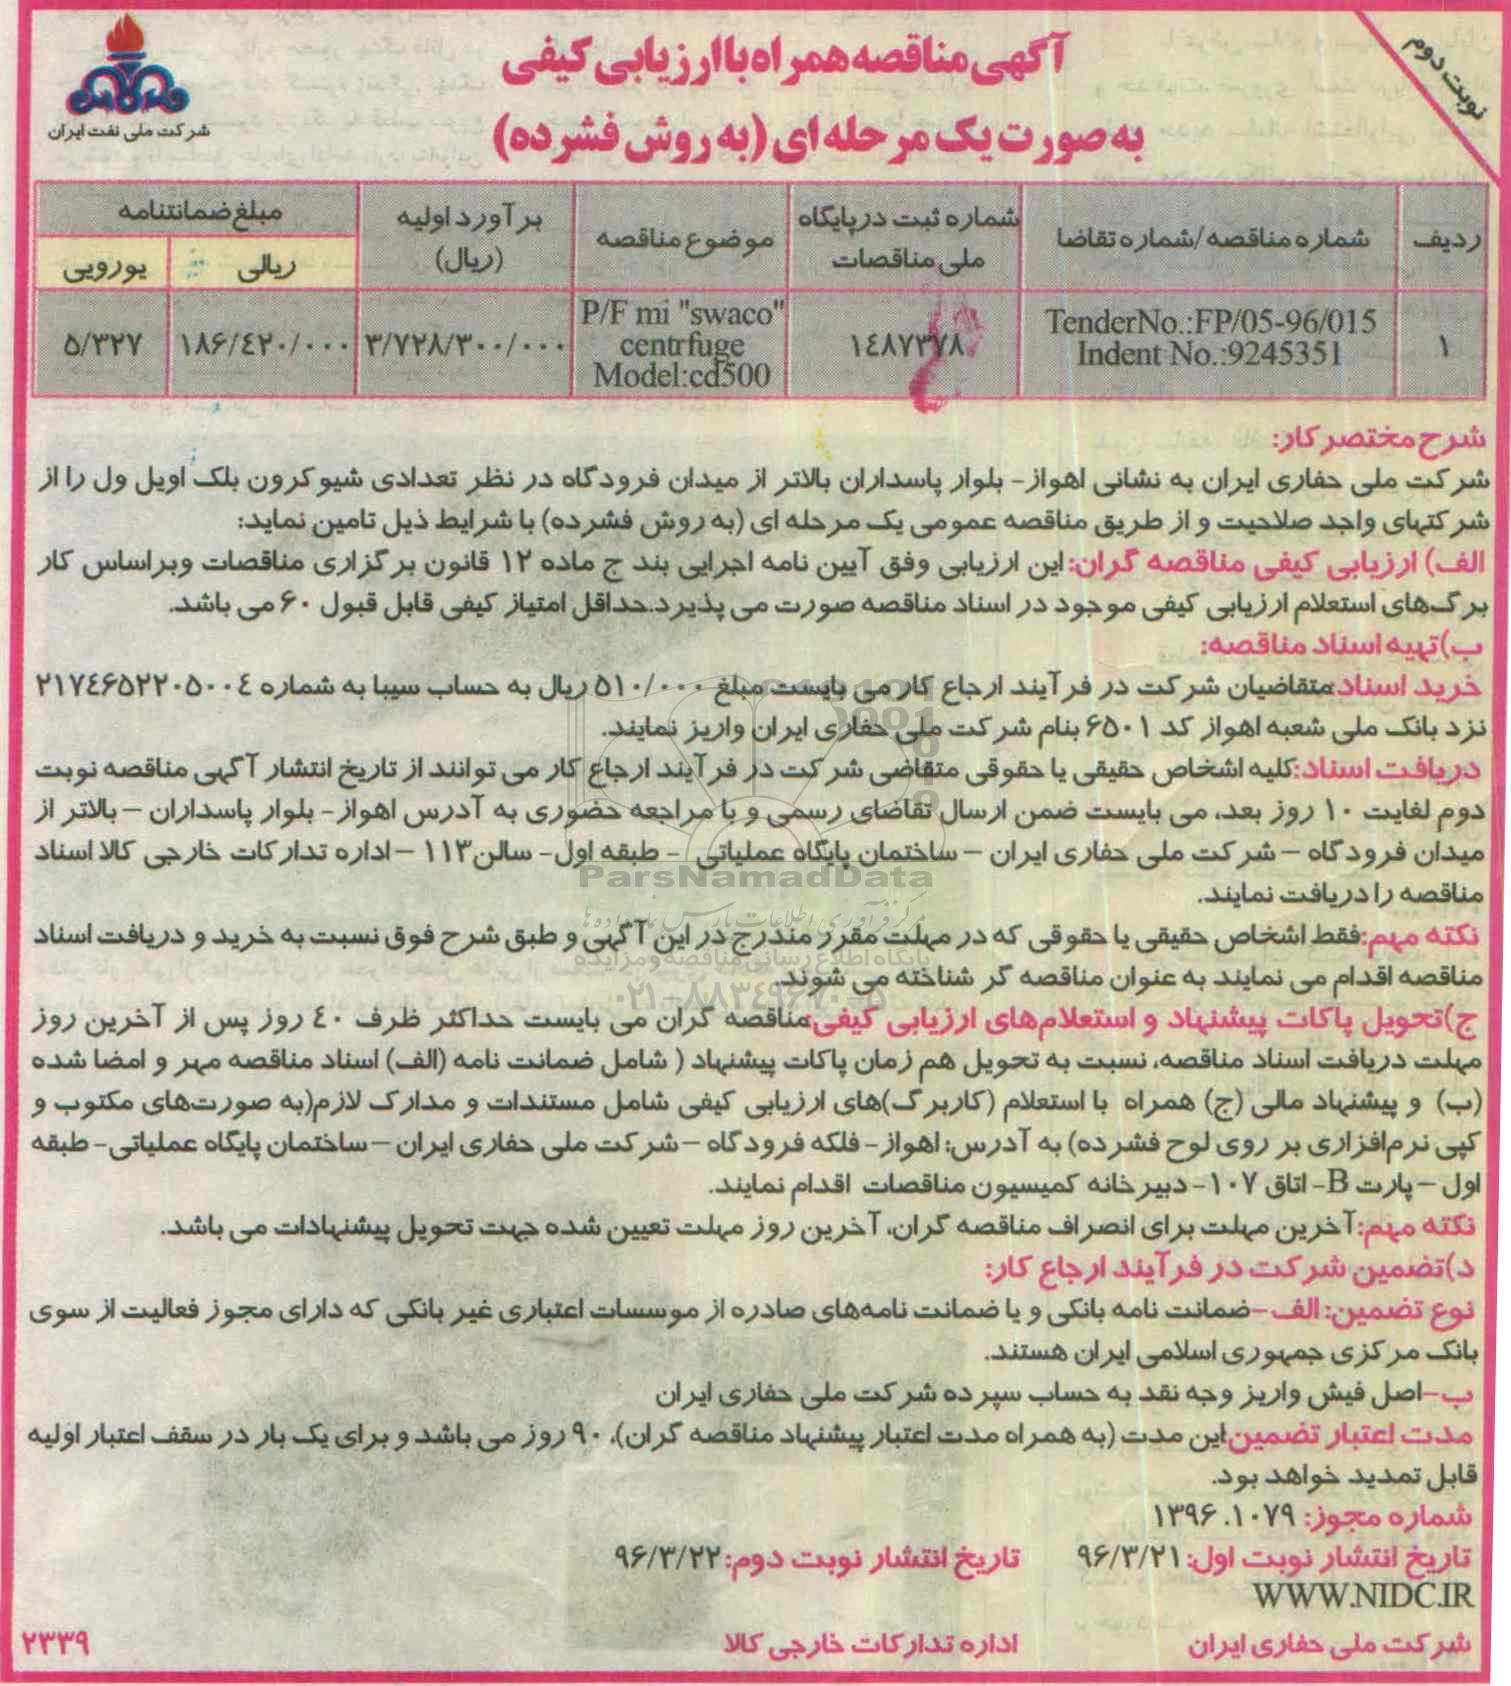 نوبت دوم
آگهی مناقصه همراه با ارزیابی کیفی
به صورت یک مرحله ای (به روش فشرده)
شرکت ملی نفت ایران
ردیف
شماره مناقصه/شماره تقاضا
شماره ثبت در پایگاه
ملی مناقصات
موضوع مناقصه
برآورد اولیه
(ریال)
مبلغ ضمانتنامه
ریالی
یورویی
۱
TenderNo.:FP/05-96/015
Indent No.:9245351
۱۴۸۷۳۷۸
P/F mi "swaco"
centrfuge
Model:cd500
۳/۷۲۸/۳۰۰/۰۰۰
۱۸۶/۴۲۰/۰۰۰
۵/۳۲۷
شرح مختصر کار:
شرکت ملی حفاری ایران به نشانی اهواز- بلوار پاسداران بالاتر از میدان فرودگاه در نظر تعدادی شیوکرون بلک اویل ول را از
شرکتهای واجد صلاحیت و از طریق مناقصه عمومی یک مرحله ای (به روش فشرده) با شرایط ذیل تامین نماید:
الف) ارزیابی کیفی مناقصه گران: این ارزیابی وفق آیین نامه اجرایی بند ج ماده ۱۲ قانون برگزاری مناقصات وبراساس کار
برگ‌های استعلام ارزیابی کیفی موجود در اسناد مناقصه صورت می پذیرد.حداقل امتیاز کیفی قابل قبول ۶۰ می باشد.
ب)تهیه اسناد مناقصه:
خرید اسناد:متقاضیان شرکت در فرآیند ارجاع کار می بایست مبلغ ۵۱۰/۰۰۰ ریال به حساب سیبا به شماره ۲۱۷۴۶۵۲۲۰۵۰۰۴
نزد بانک ملی شعبه اهواز کد ۶۵۰۱ بنام شرکت ملی حفاری ایران واریز نمایند.
دریافت اسناد:کلیه اشخاص حقیقی یا حقوقی متقاضی شرکت در فرآیند ارجاع کار می توانند از تاریخ انتشار آگهی مناقصه نوبت
دوم لغایت ۱۰ روز بعد، می بایست ضمن ارسال تقاضای رسمی و با مراجعه حضوری به آدرس اهواز- بلوار پاسداران – بالاتر از
میدان فرودگاه – شرکت ملی حفاری ایران – ساختمان پایگاه عملیاتی - طبقه اول- سالن۱۱۳ – اداره تدارکات خارجی کالا اسناد
مناقصه را دریافت نمایند.
ParsNamadData
مرکز فرآوری اطلاعات پارس نماد داده ها
نکته مهم:فقط اشخاص حقیقی یا حقوقی که در مهلت مقرر مندرج در این آگهی و طبق شرح فوق نسبت به خرید و دریافت اسناد
پایگاه اطلاع رسانی مناقصه و مزایده
مناقصه اقدام می نمایند به عنوان مناقصه گر شناخته می شوند.
۰۲۱-۸۸۳۴۹۶۷۰-۵
ج)تحویل پاکات پیشنهاد و استعلام‌های ارزیابی کیفی:مناقصه گران می بایست حداکثر ظرف ۴۰ روز پس از آخرین روز
مهلت دریافت اسناد مناقصه، نسبت به تحویل هم زمان پاکات پیشنهاد ( شامل ضمانت نامه (الف) اسناد مناقصه مهر و امضا شده
(ب) و پیشنهاد مالی (ج) همراه با استعلام (کاربرگ)های ارزیابی کیفی شامل مستندات و مدارک لازم(به صورت‌های مکتوب و
کپی نرم‌افزاری بر روی لوح فشرده) به آدرس: اهواز- فلکه فرودگاه – شرکت ملی حفاری ایران – ساختمان پایگاه عملیاتی- طبقه
اول – پارت B- اتاق ۱۰۷- دبیرخانه کمیسیون مناقصات اقدام نمایند.
نکته مهم:آخرین مهلت برای انصراف مناقصه گران، آخرین روز مهلت تعیین شده جهت تحویل پیشنهادات می باشد.
د)تضمین شرکت در فرآیند ارجاع کار:
نوع تضمین: الف-ضمانت نامه بانکی و یا ضمانت نامه‌های صادره از موسسات اعتباری غیر بانکی که دارای مجوز فعالیت از سوی
بانک مرکزی جمهوری اسلامی ایران هستند.
ب-اصل فیش واریز وجه نقد به حساب سپرده شرکت ملی حفاری ایران
مدت اعتبار تضمین:این مدت (به همراه مدت اعتبار پیشنهاد مناقصه گران)، ۹۰ روز می باشد و برای یک بار در سقف اعتبار اولیه
قابل تمدید خواهد بود.
شماره مجوز: ۱۳۹۶.۱۰۷۹
تاریخ انتشار نوبت اول: ۹۶/۳/۲۱
تاریخ انتشار نوبت دوم: ۹۶/۳/۲۲
WWW.NIDC.IR
شرکت ملی حفاری ایران
اداره تدارکات خارجی کالا
۲۳۳۹